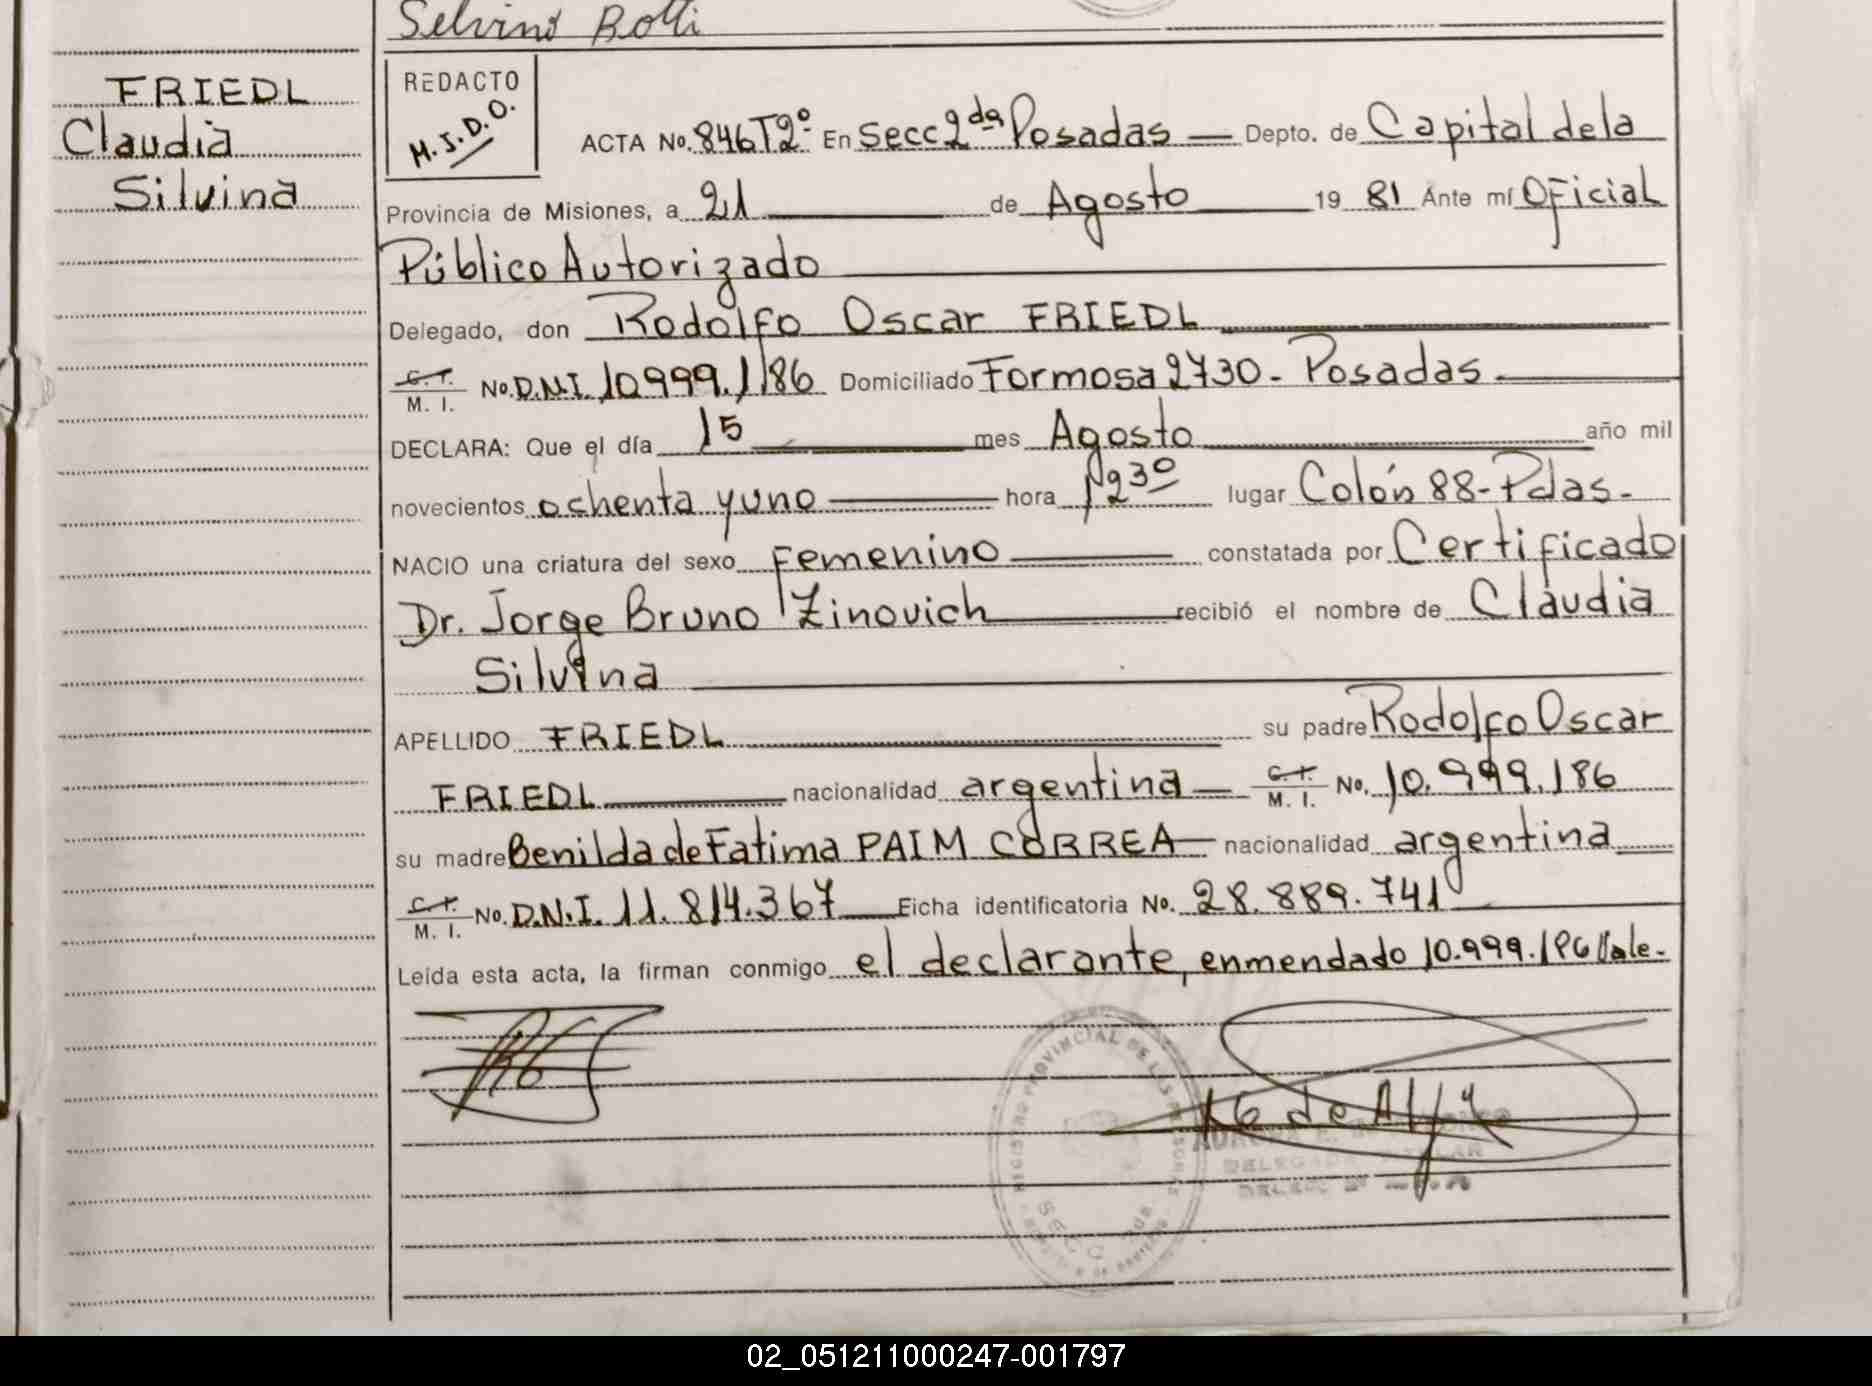 Selvino Rolli
FRIEDL
Claudia
Silvina
REDACTO
M.I.D.O.
ACTA No. 846 T2º En Secc 2da Posadas — Depto. de Capital de la
Provincia de Misiones, a 21 de Agosto 19 81 Ante mí Oficial
Público Autorizado
Delegado, don Rodolfo Oscar FRIEDL
C.I. / M. I. No. D.N.I. 10.999.186 Domiciliado Formosa 2730 - Posadas -
DECLARA: Que el día 15 mes Agosto año mil
novecientos ochenta y uno hora 1230 lugar Colón 88 - Pdas -
NACIO una criatura del sexo Femenino constatada por Certificado
Dr. Jorge Bruno Zinovich recibió el nombre de Claudia
Silvina
APELLIDO FRIEDL su padre Rodolfo Oscar
FRIEDL nacionalidad argentina — C.I. / M. I. No. 10.999.186
su madre Benilda de Fatima PAIM CORREA — nacionalidad argentina
C.I. / M. I. No. D.N.I. 11.814.367 Ficha identificatoria No. 28.889.741
Leída esta acta, la firman conmigo el declarante, enmendado 10.999.186 Vale.-
REGISTRO PROVINCIAL DE LAS PERSONAS
02_051211000247-001797